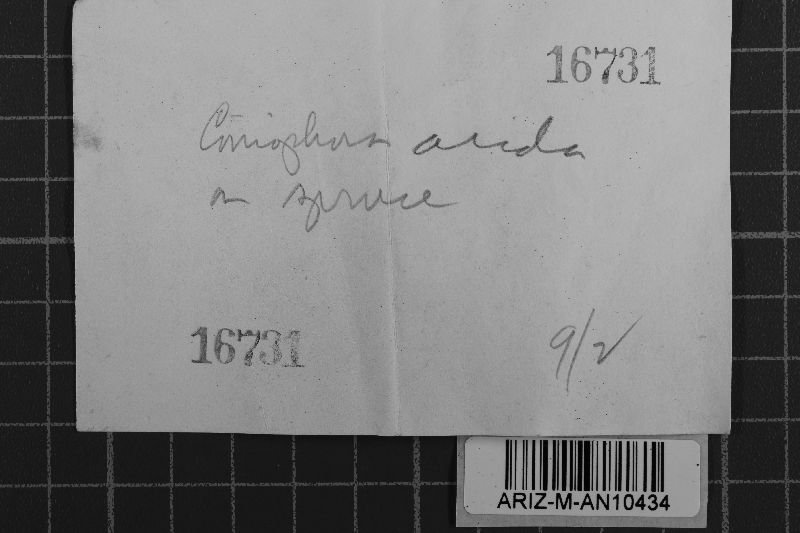 16731
Coniophora arida
on spruce
16731
9/2
ARIZ-M-AN10434